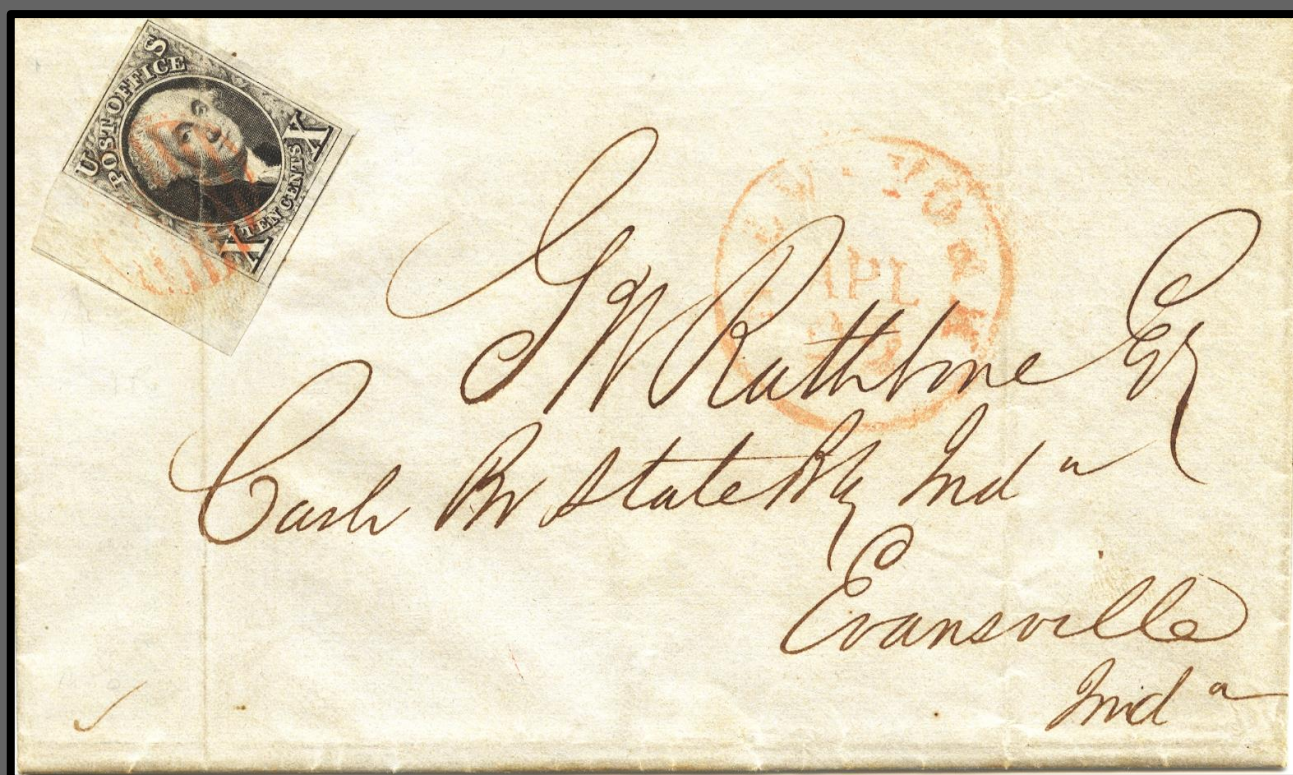 U S
POST OFFICE
X TEN CENTS X
NEW-YORK
APL
G W Rathbone Esq
Cash Br State Bk Indª
Evansville
Indª